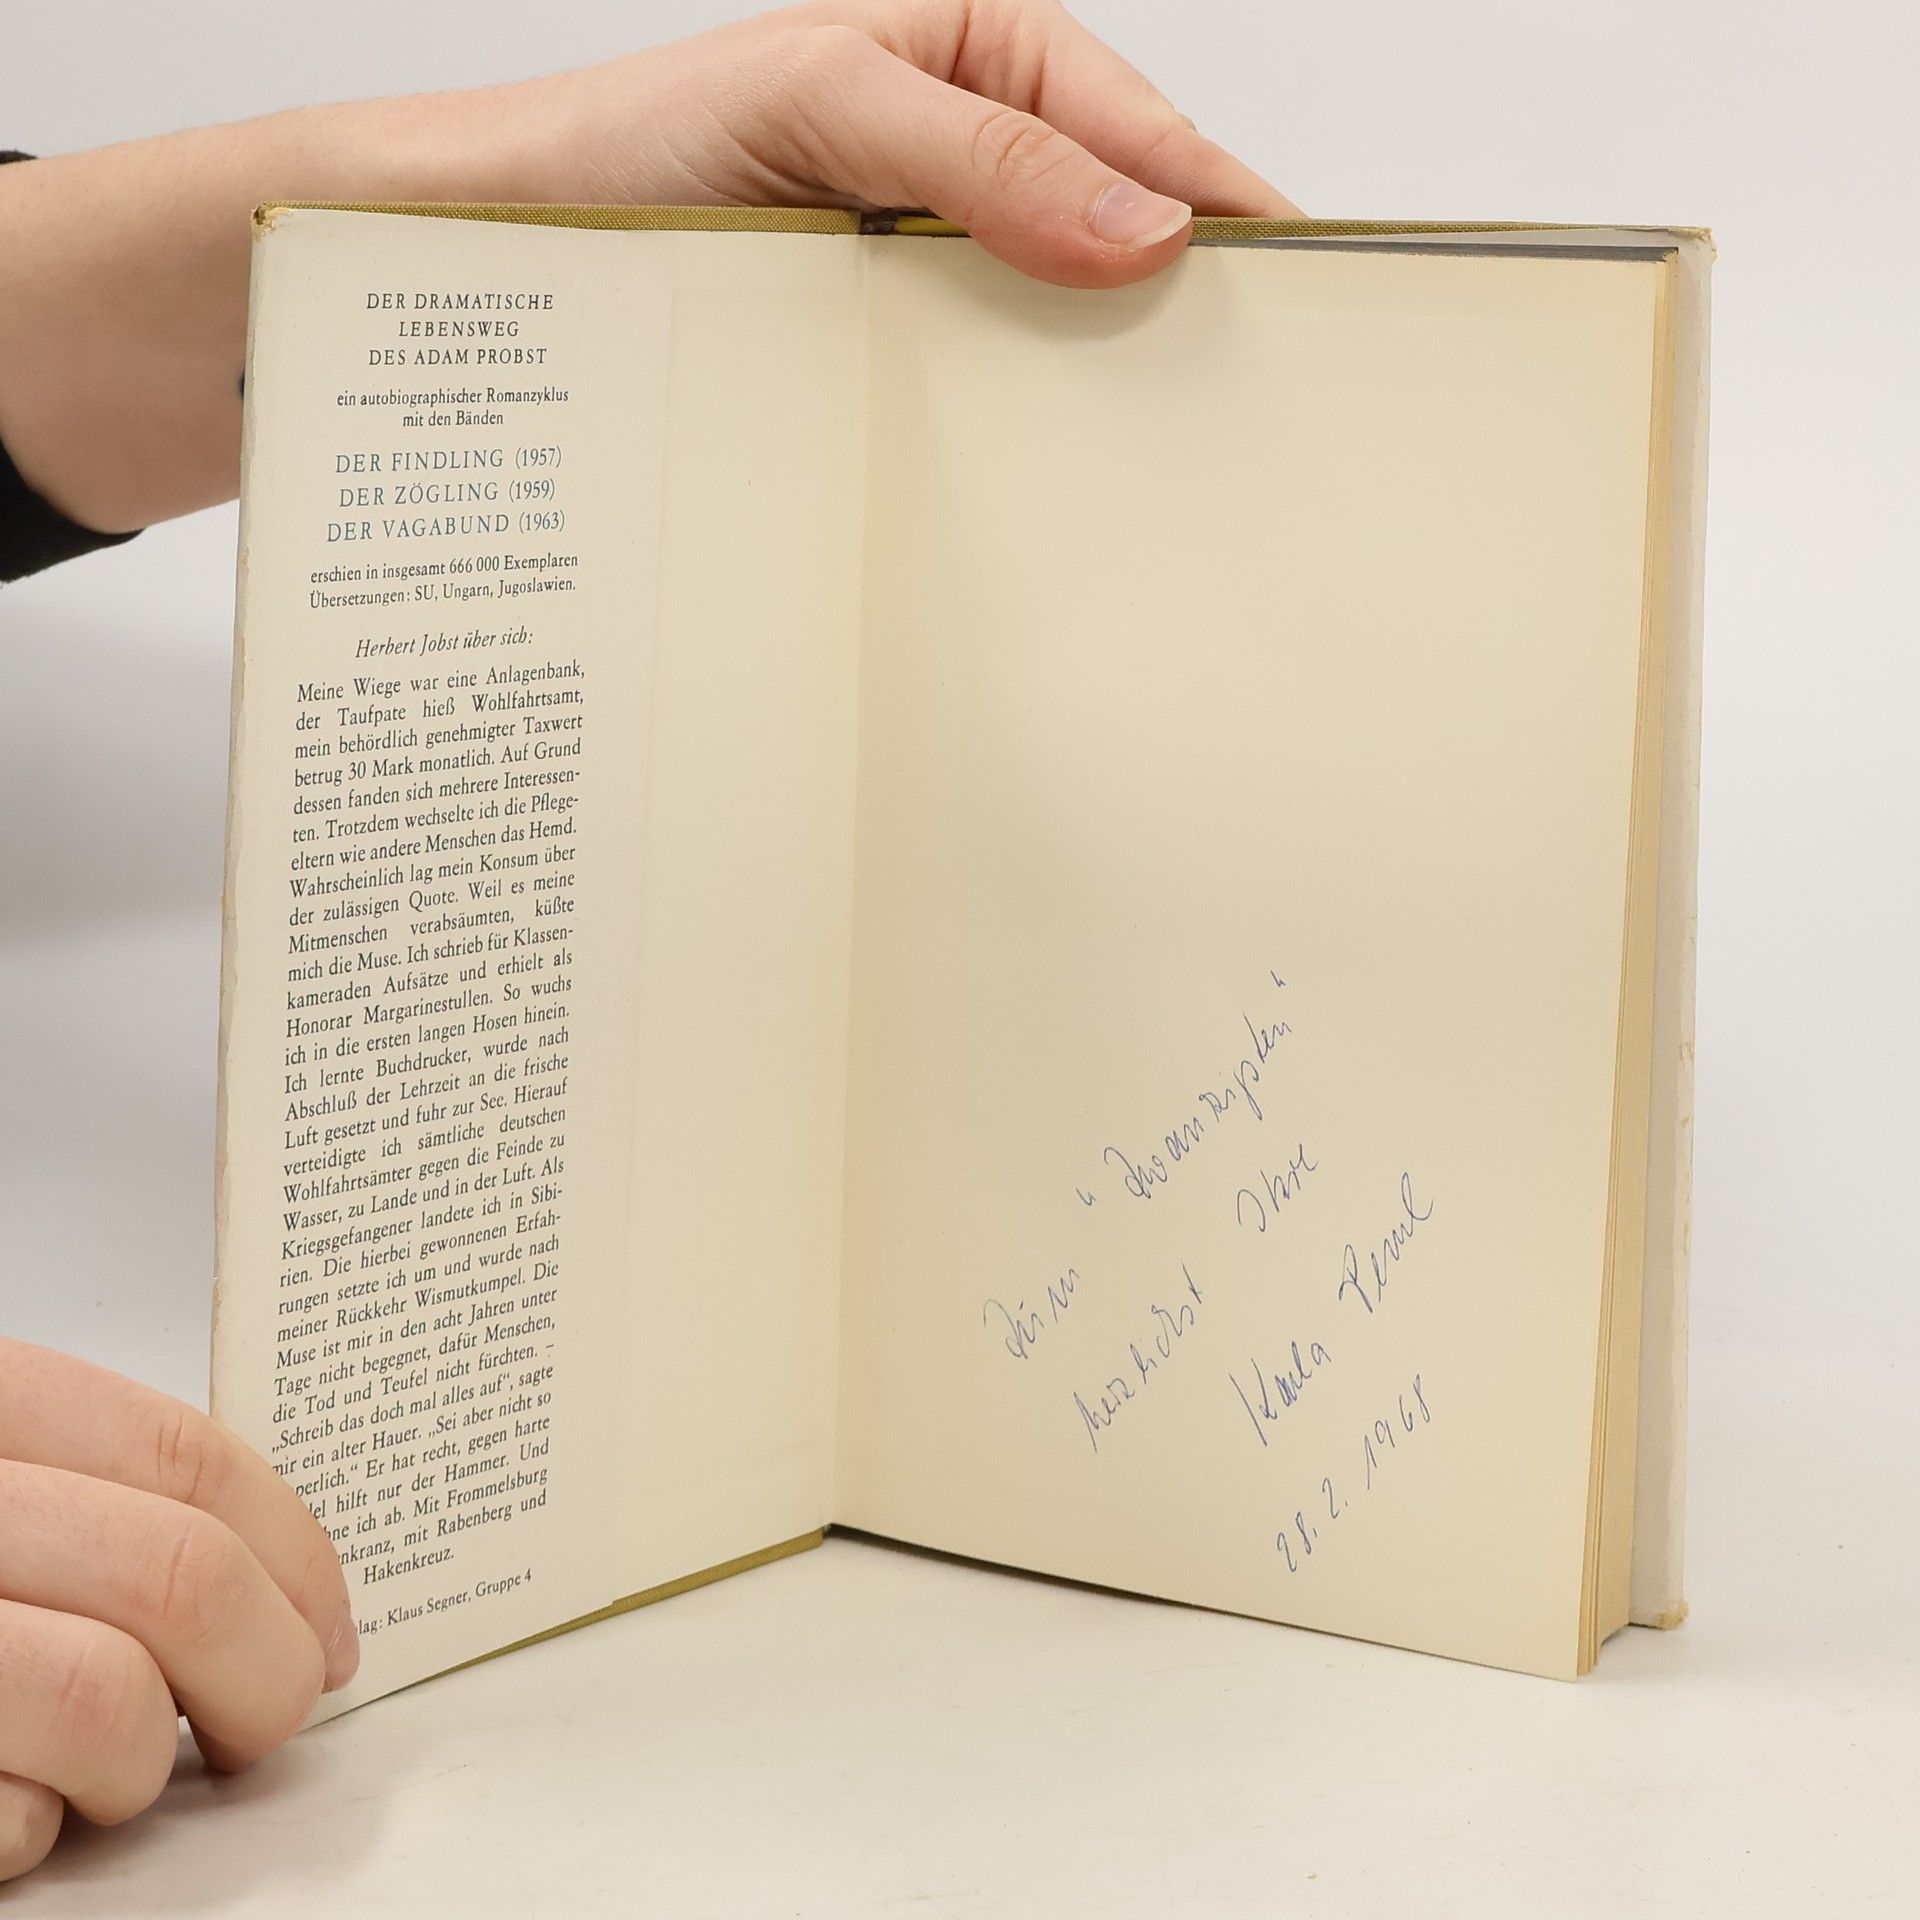 DER DRAMATISCHE
LEBENSWEG
DES ADAM PROBST
ein autobiographischer Romanzyklus
mit den Bänden
DER FINDLING (1957)
DER ZÖGLING (1959)
DER VAGABUND (1963)
erschien in insgesamt 666 000 Exemplaren
Übersetzungen: SU, Ungarn, Jugoslawien.
Herbert Jobst über sich:
Meine Wiege war eine Anlagenbank,
der Taufpate hieß Wohlfahrtsamt,
mein behördlich genehmigter Taxwert
betrug 30 Mark monatlich. Auf Grund
dessen fanden sich mehrere Interessen-
ten. Trotzdem wechselte ich die Pflege-
eltern wie andere Menschen das Hemd.
Wahrscheinlich lag mein Konsum über
der zulässigen Quote. Weil es meine
Mitmenschen verabsäumten, küßte
mich die Muse. Ich schrieb für Klassen-
kameraden Aufsätze und erhielt als
Honorar Margarinestullen. So wuchs
ich in die ersten langen Hosen hinein.
Ich lernte Buchdrucker, wurde nach
Abschluß der Lehrzeit an die frische
Luft gesetzt und fuhr zur See. Hierauf
verteidigte ich sämtliche deutschen
Wohlfahrtsämter gegen die Feinde zu
Wasser, zu Lande und in der Luft. Als
Kriegsgefangener landete ich in Sibi-
rien. Die hierbei gewonnenen Erfah-
rungen setzte ich um und wurde nach
meiner Rückkehr Wismutkumpel. Die
Muse ist mir in den acht Jahren unter
Tage nicht begegnet, dafür Menschen,
die Tod und Teufel nicht fürchten. –
„Schreib das doch mal alles auf“, sagte
mir ein alter Hauer. „Sei aber nicht so
perlich.“ Er hat recht, gegen harte
del hilft nur der Hammer. Und
hne ich ab. Mit Frommelsburg
nkranz, mit Rabenberg und
Hakenkreuz.
lag: Klaus Segner, Gruppe 4
Zum "Zwanzigsten"
herzlichst Ihre
Karla
28. 2. 1968